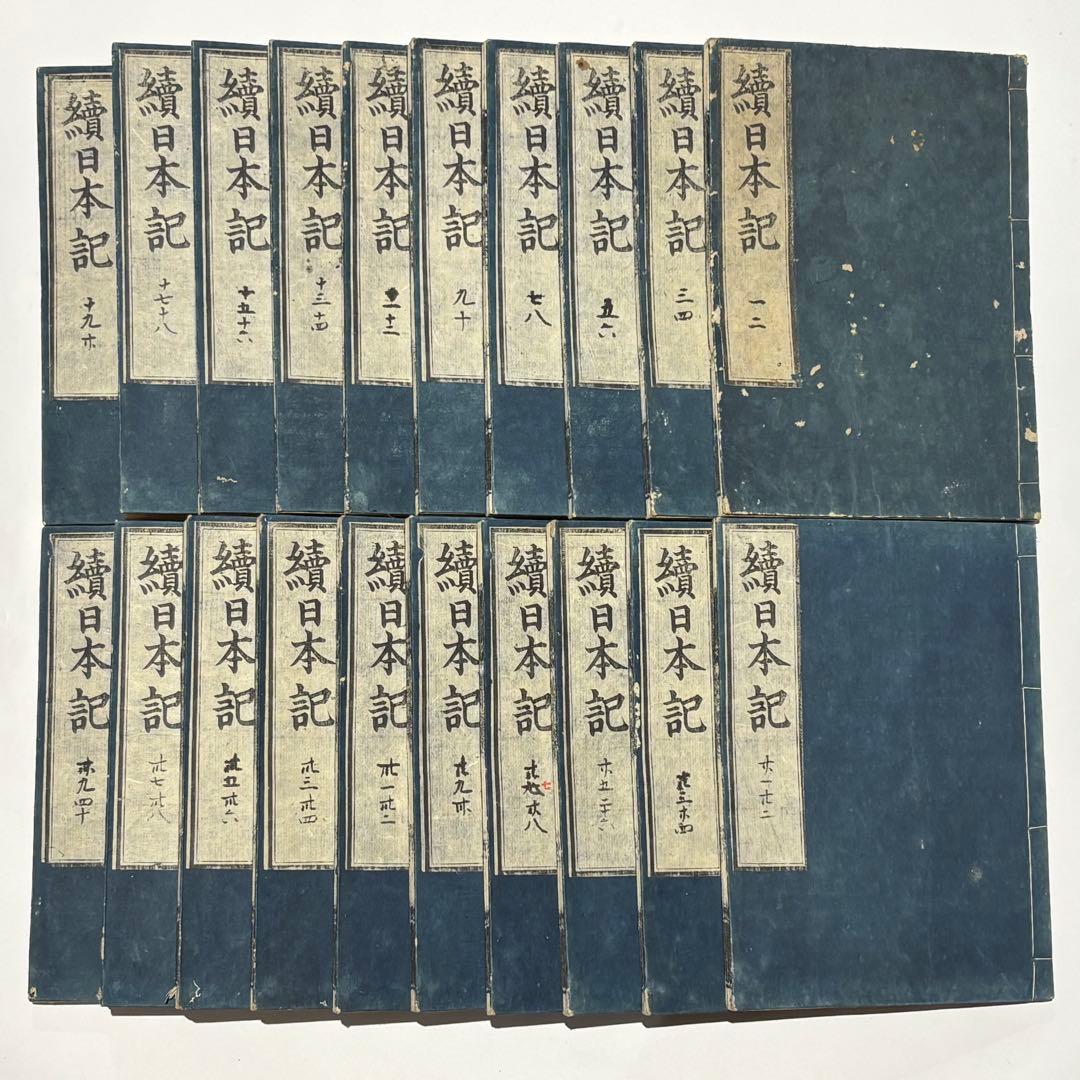 續日本記 一二
續日本記 三四
續日本記 五六
續日本記 七八
續日本記 九十
續日本記
續日本記 十三十四
續日本記 十五十六
續日本記 十七十八
續日本記 十九廿
續日本記 廿一廿二
續日本記 廿三廿四
續日本記 廿五二十六
續日本記 廿七廿八
續日本記 廿九卅
續日本記 卅一卅二
續日本記 卅三卅四
續日本記 卅五卅六
續日本記 卅七卅八
續日本記 卅九四十